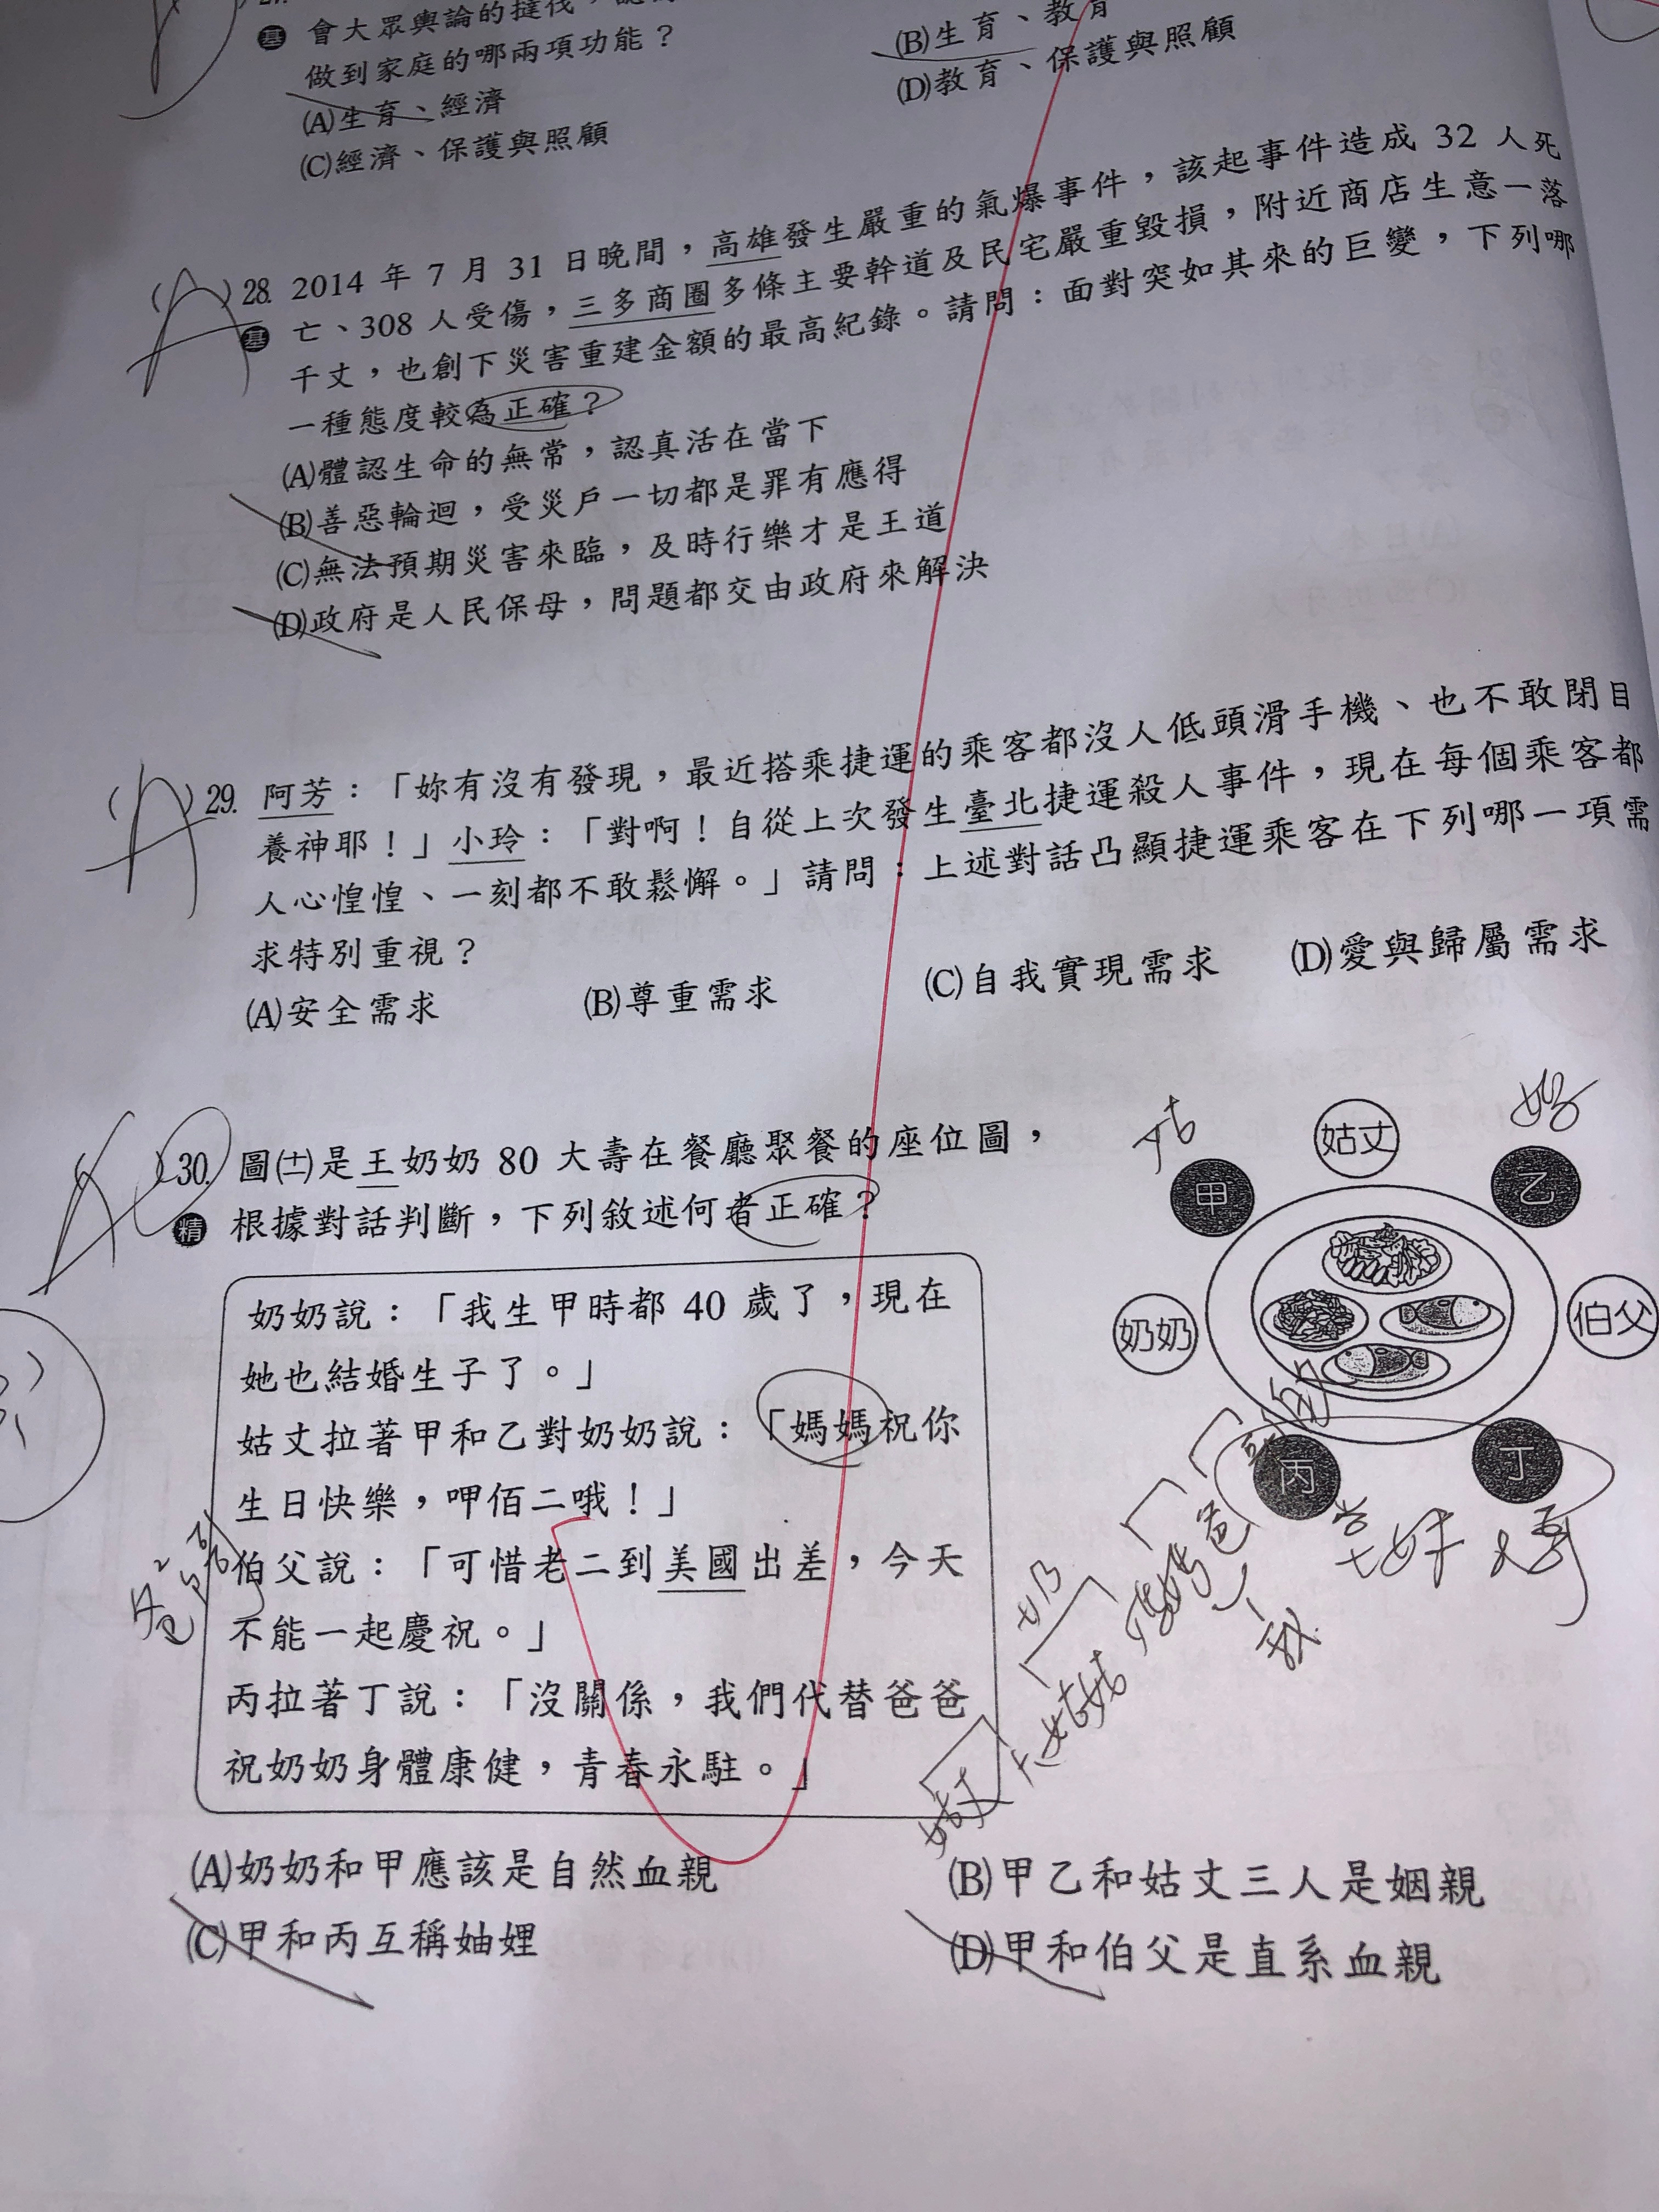 會大眾輿論的撻伐，
做到家庭的哪兩項功能？
(A)生育、經濟
(B)生育、教育
(C)經濟、保護與照顧
(D)教育、保護與照顧
(A)28. 2014 年 7 月 31 日晚間，高雄發生嚴重的氣爆事件，該起事件造成 32 人死
基 亡、308 人受傷，三多商圈多條主要幹道及民宅嚴重毀損，附近商店生意一落
千丈，也創下災害重建金額的最高紀錄。請問：面對突如其來的巨變，下列哪
一種態度較為正確？
(A)體認生命的無常，認真活在當下
(B)善惡輪迴，受災戶一切都是罪有應得
(C)無法預期災害來臨，及時行樂才是王道
(D)政府是人民保母，問題都交由政府來解決
(A)29. 阿芳：「妳有沒有發現，最近搭乘捷運的乘客都沒人低頭滑手機、也不敢閉目
養神耶！」小玲：「對啊！自從上次發生臺北捷運殺人事件，現在每個乘客都
人心惶惶、一刻都不敢鬆懈。」請問：上述對話凸顯捷運乘客在下列哪一項需
求特別重視？
(A)安全需求 (B)尊重需求 (C)自我實現需求 (D)愛與歸屬需求
(A)30. 圖(十一)是王奶奶 80 大壽在餐廳聚餐的座位圖，
精 根據對話判斷，下列敘述何者正確？
奶奶說：「我生甲時都 40 歲了，現在
她也結婚生子了。」
姑丈拉著甲和乙對奶奶說：「媽媽祝你
生日快樂，呷佰二哦！」
伯父說：「可惜老二到美國出差，今天
不能一起慶祝。」
丙拉著丁說：「沒關係，我們代替爸爸
祝奶奶身體康健，青春永駐。」
姑丈
甲
乙
奶奶
伯父
丙
丁
(A)奶奶和甲應該是自然血親
(B)甲乙和姑丈三人是姻親
(C)甲和丙互稱妯娌
(D)甲和伯父是直系血親